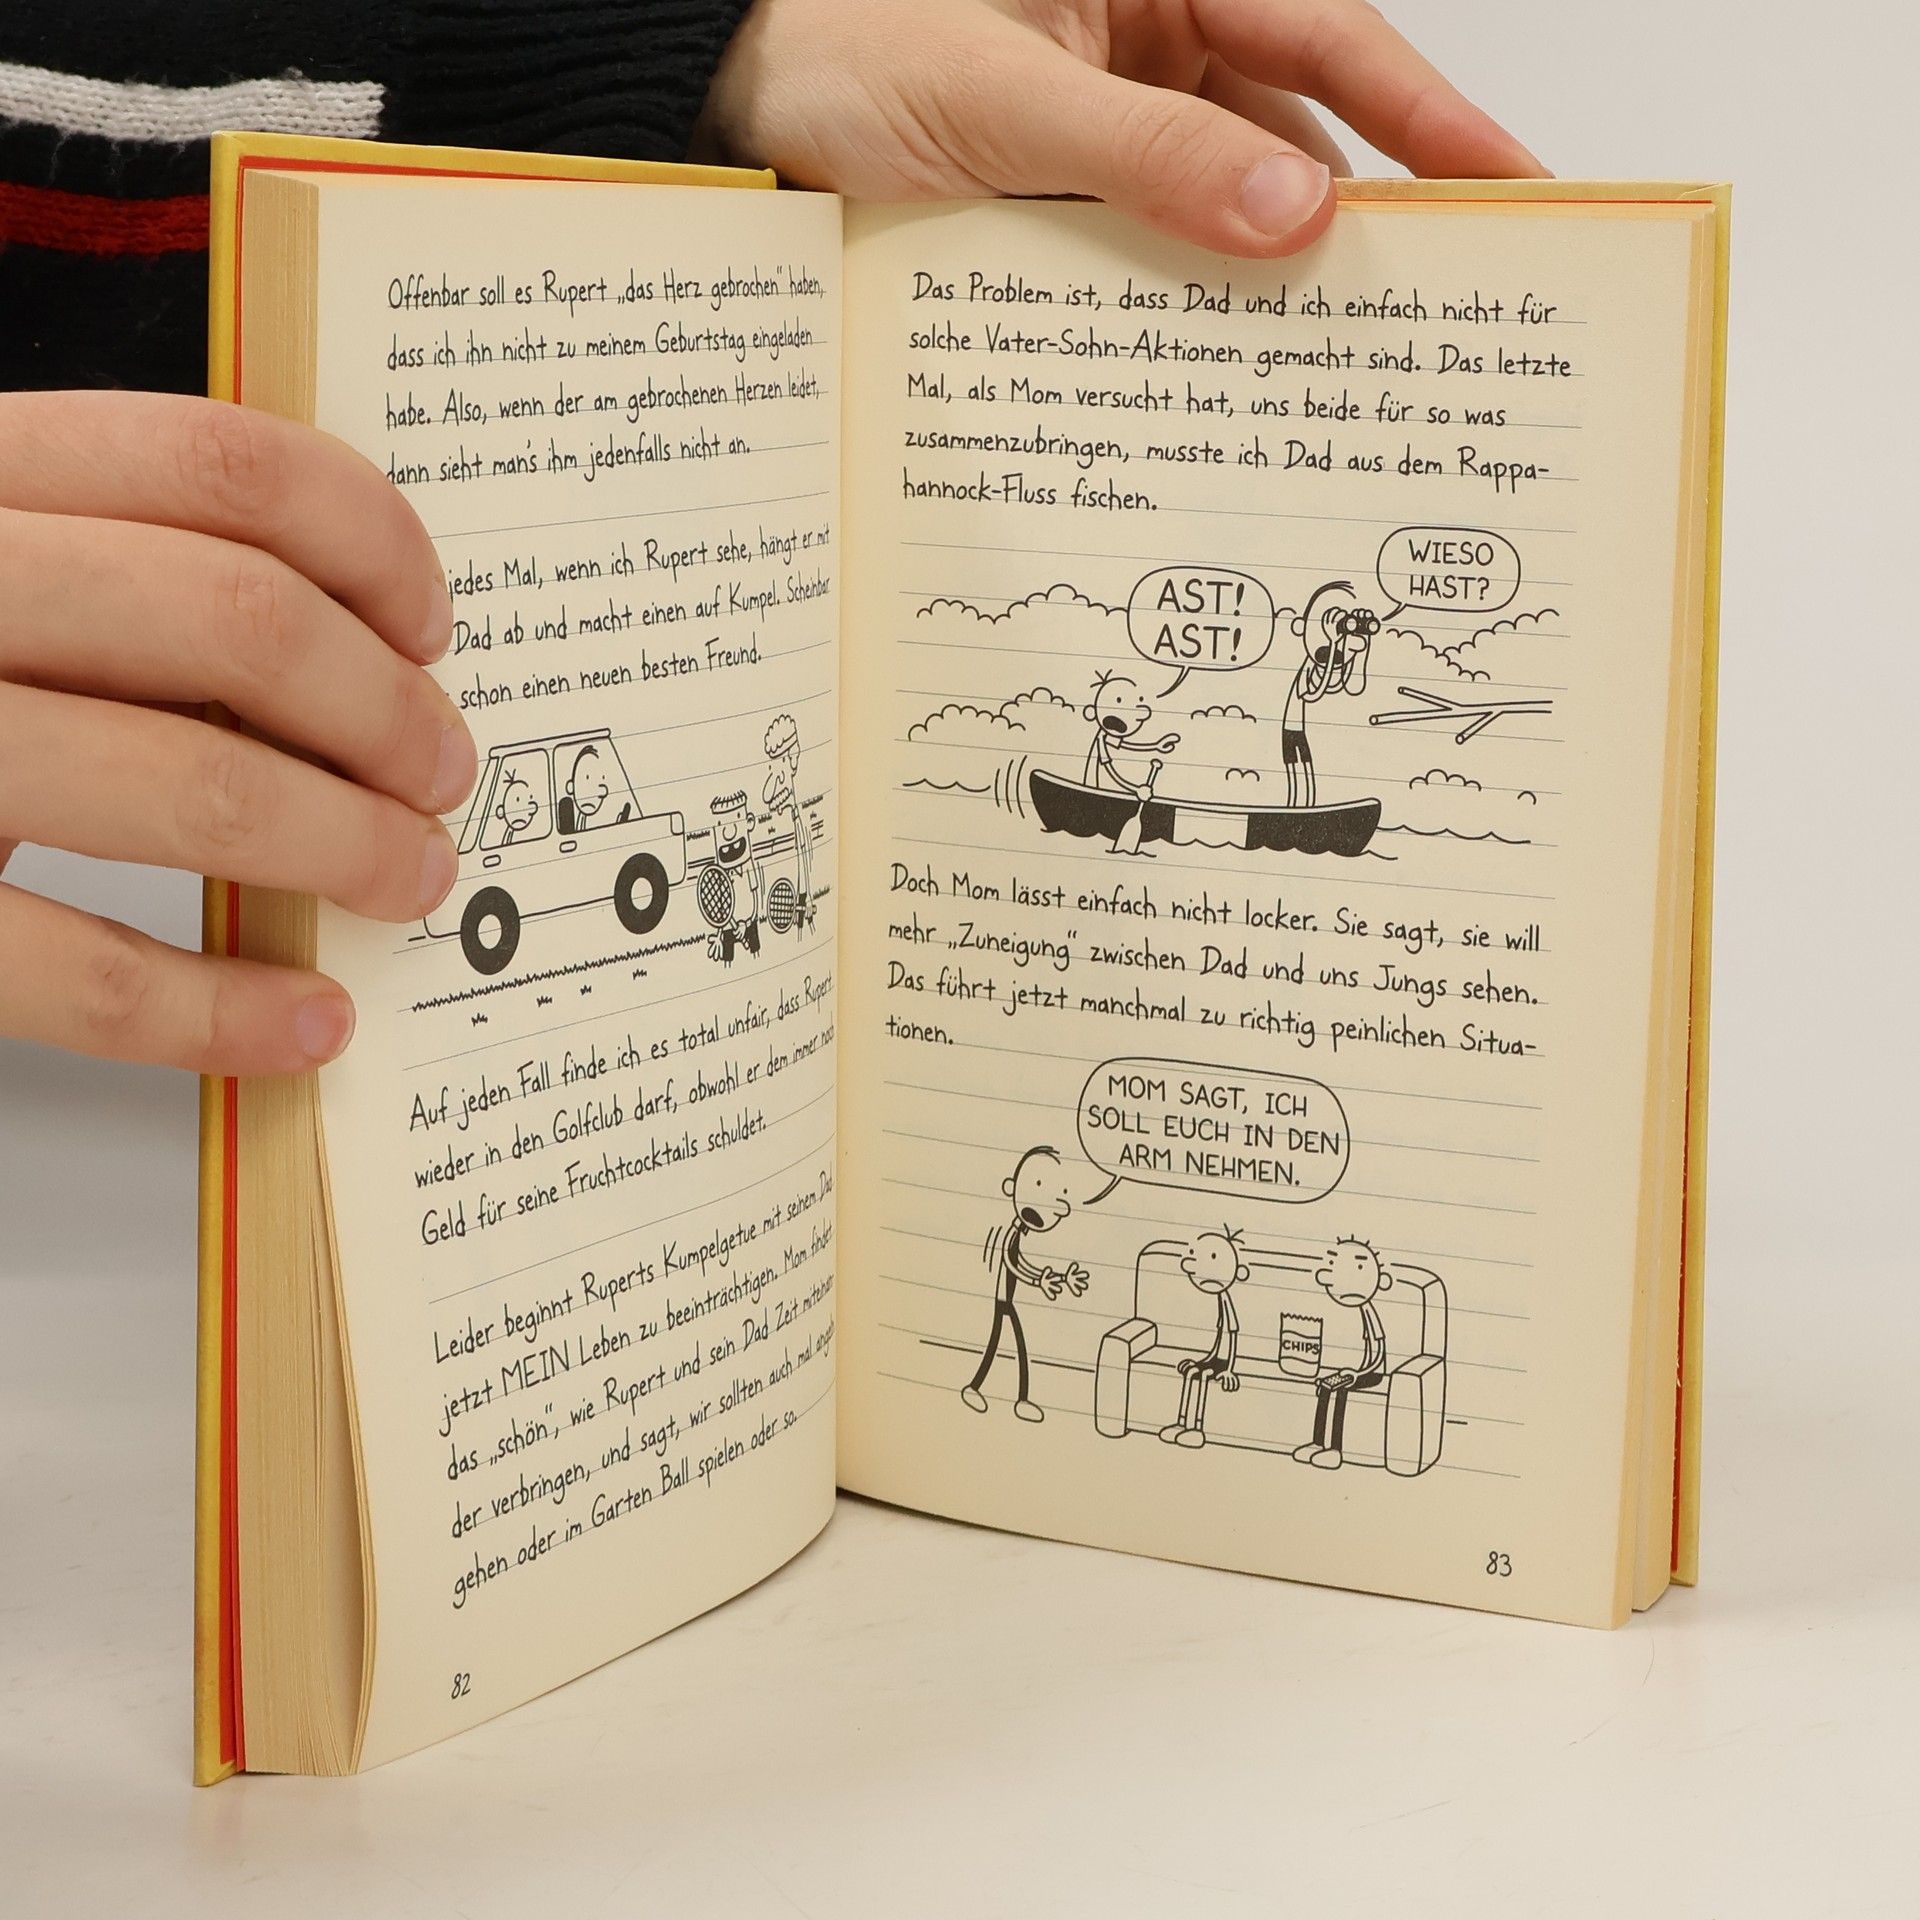 Offenbar soll es Rupert „das Herz gebrochen" haben,
dass ich ihn nicht zu meinem Geburtstag eingeladen
habe. Also, wenn der am gebrochenen Herzen leidet,
dann sieht man's ihm jedenfalls nicht an.
jedes Mal, wenn ich Rupert sehe, hängt er mit
Dad ab und macht einen auf Kumpel. Scheinbar
schon einen neuen besten Freund.
Auf jeden Fall finde ich es total unfair, dass Rupert
wieder in den Golfclub darf, obwohl er dem immer noch
Geld für seine Fruchtcocktails schuldet.
Leider beginnt Ruperts Kumpelgetue mit seinem Dad
jetzt MEIN Leben zu beeinträchtigen. Mom findet
das „schön", wie Rupert und sein Dad Zeit miteinan-
der verbringen, und sagt, wir sollten auch mal angeln
gehen oder im Garten Ball spielen oder so.
82
Das Problem ist, dass Dad und ich einfach nicht für
solche Vater-Sohn-Aktionen gemacht sind. Das letzte
Mal, als Mom versucht hat, uns beide für so was
zusammenzubringen, musste ich Dad aus dem Rappa-
hannock-Fluss fischen.
AST!
AST!
WIESO
HAST?
Doch Mom lässt einfach nicht locker. Sie sagt, sie will
mehr „Zuneigung" zwischen Dad und uns Jungs sehen.
Das führt jetzt manchmal zu richtig peinlichen Situa-
tionen.
MOM SAGT, ICH
SOLL EUCH IN DEN
ARM NEHMEN.
CHIPS
83